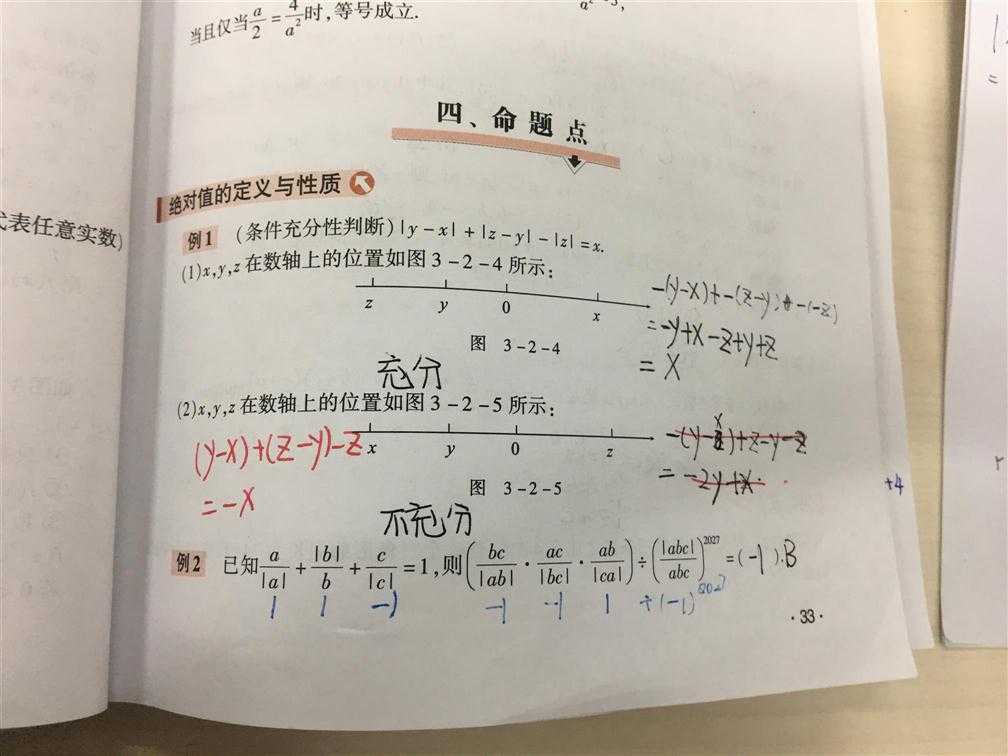 当且仅当a/2=4/a²时,等号成立.
四、命题点
代表任意实数)
绝对值的定义与性质
例1 (条件充分性判断)|y-x|+|z-y|-|z|=x.
(1)x,y,z在数轴上的位置如图3-2-4所示:
z y 0 x
-(y-x)+-(z-y)+-(-z)
=-y+x-z+y+z
=x
图 3-2-4
充分
(2)x,y,z在数轴上的位置如图3-2-5所示:
(y-x)+(z-y)-z
=-x
x y 0 z
=-2y+x.
图 3-2-5
+4
不充分
例2 已知a/|a|+|b|/b+c/|c|=1,则(bc/|ab|·ac/|bc|·ab/|ca|)÷(|abc|/abc)^2027=(-1).B
1 1 -1 -1 -1 1 ÷(-1)^2027
·33·